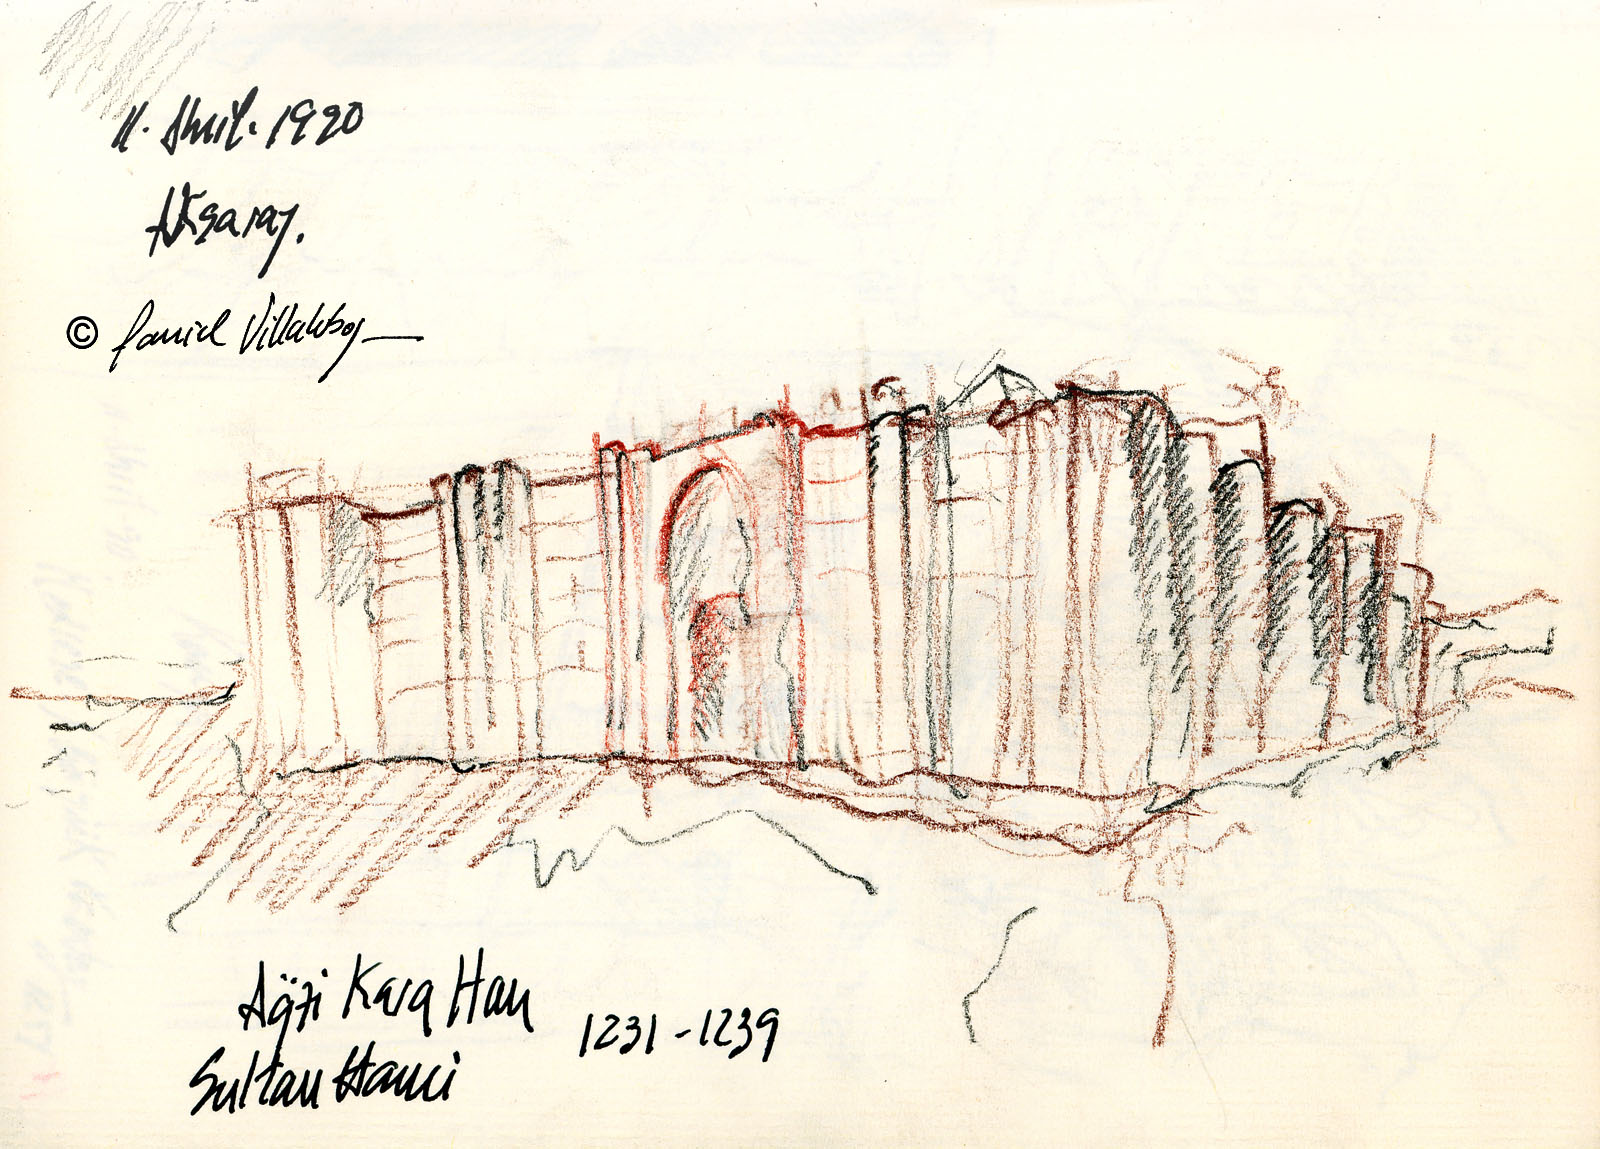 11. Abril. 1990
Aksaray.
© Daniel Villalobos
Ağzi Kara Han
1231-1239
Sultan Hanci